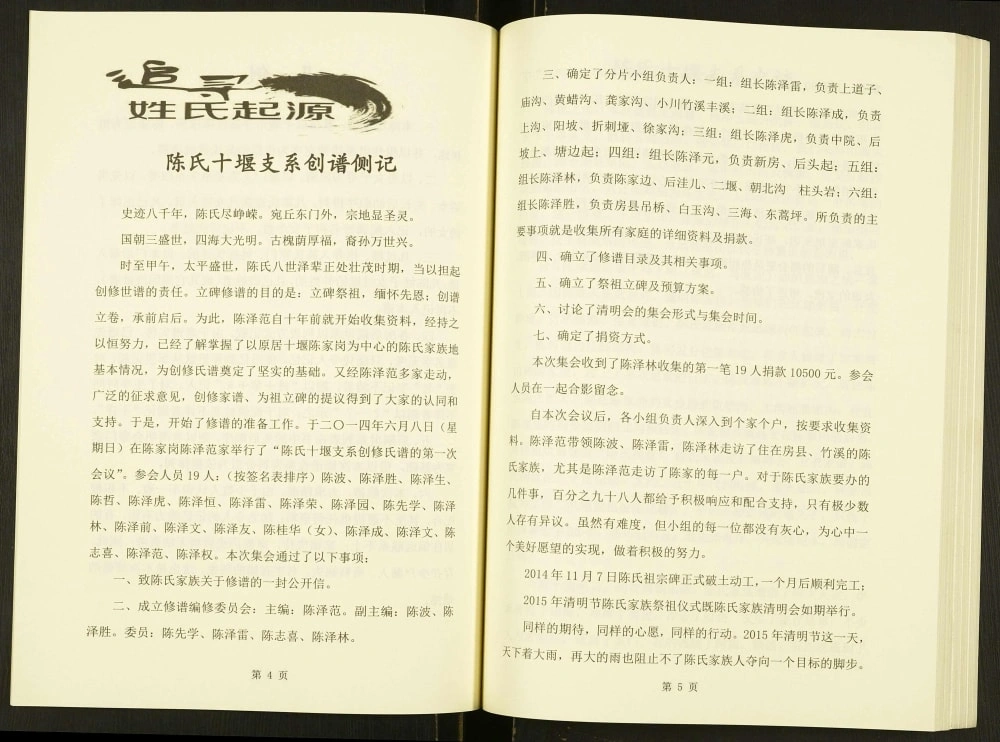 追寻
姓氏起源
陈氏十堰支系创谱侧记
史迹八千年，陈氏尽峥嵘。宛丘东门外，宗地显圣灵。
国朝三盛世，四海大光明。古槐荫厚福，裔孙万世兴。
时至甲午，太平盛世，陈氏八世泽辈正处壮茂时期，当以担起
创修世谱的责任。立碑修谱的目的是：立碑祭祖，缅怀先恩；创谱
立卷，承前启后。为此，陈泽范自十年前就开始收集资料，经持之
以恒努力，已经了解掌握了以原居十堰陈家岗为中心的陈氏家族地
基本情况，为创修氏谱奠定了坚实的基础。又经陈泽范多家走动，
广泛的征求意见，创修家谱、为祖立碑的提议得到了大家的认同和
支持。于是，开始了修谱的准备工作。于二〇一四年六月八日（星
期日）在陈家岗陈泽范家举行了“陈氏十堰支系创修氏谱的第一次
会议”。参会人员 19 人：（按签名表排序）陈波、陈泽胜、陈泽生、
陈哲、陈泽虎、陈泽恒、陈泽雷、陈泽荣、陈泽园、陈先学、陈泽
林、陈泽前、陈泽文、陈泽友、陈桂华（女）、陈泽成、陈泽文、陈
志喜、陈泽范、陈泽权。本次集会通过了以下事项：
一、致陈氏家族关于修谱的一封公开信。
二、成立修谱编修委员会：主编：陈泽范。副主编：陈波、陈
泽胜。委员：陈先学、陈泽雷、陈志喜、陈泽林。
第 4 页
三、确定了分片小组负责人：一组：组长陈泽雷，负责上道子、
庙沟、黄蜡沟、龚家沟、小川竹溪丰溪；二组：组长陈泽成，负责
上沟、阳坡、折刺垭、徐家沟；三组：组长陈泽虎，负责中院、后
坡上、塘边起；四组：组长陈泽元，负责新房、后头起；五组：
组长陈泽林，负责陈家边、后洼儿、二堰、朝北沟 柱头岩；六组：
组长陈泽胜，负责房县吊桥、白玉沟、三海、东蒿坪。所负责的主
要事项就是收集所有家庭的详细资料及捐款。
四、确立了修谱目录及其相关事项。
五、确立了祭祖立碑及预算方案。
六、讨论了清明会的集会形式与集会时间。
七、确定了捐资方式。
本次集会收到了陈泽林收集的第一笔 19 人捐款 10500 元。参会
人员在一起合影留念。
自本次会议后，各小组负责人深入到个家个户，按要求收集资
料。陈泽范带领陈波、陈泽雷，陈泽林走访了住在房县、竹溪的陈
氏家族，尤其是陈泽范走访了陈家的每一户。对于陈氏家族要办的
几件事，百分之九十八人都给予积极响应和配合支持，只有极少数
人存有异议。虽然有难度，但小组的每一位都没有灰心，为心中一
个美好愿望的实现，做着积极的努力。
2014 年 11 月 7 日陈氏祖宗碑正式破土动工，一个月后顺利完工；
2015 年清明节陈氏家族祭祖仪式既陈氏家族清明会如期举行。
同样的期待，同样的心愿，同样的行动。2015 年清明节这一天，
天下着大雨，再大的雨也阻止不了陈氏家族人夺向一个目标的脚步。
第 5 页